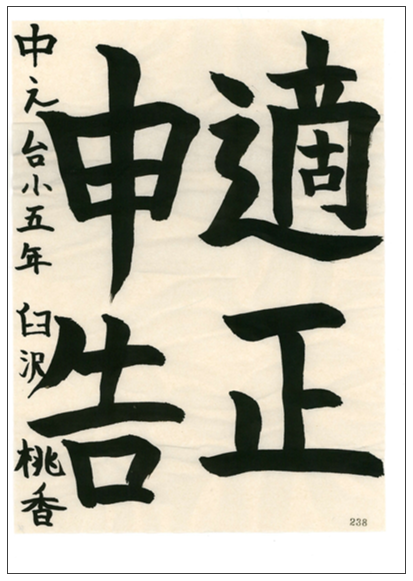 適正
申告
中之台小五年 臼沢 桃香
238